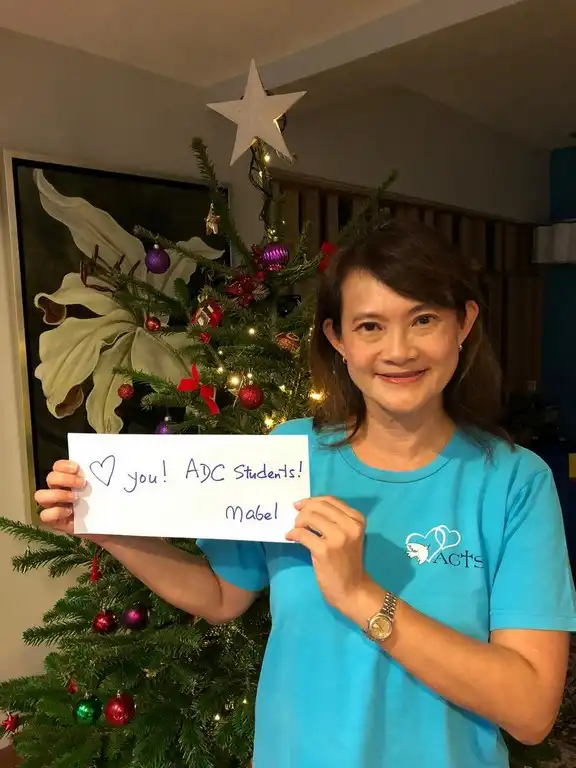 ♡ you! ADC Students!
Mabel
ACTS